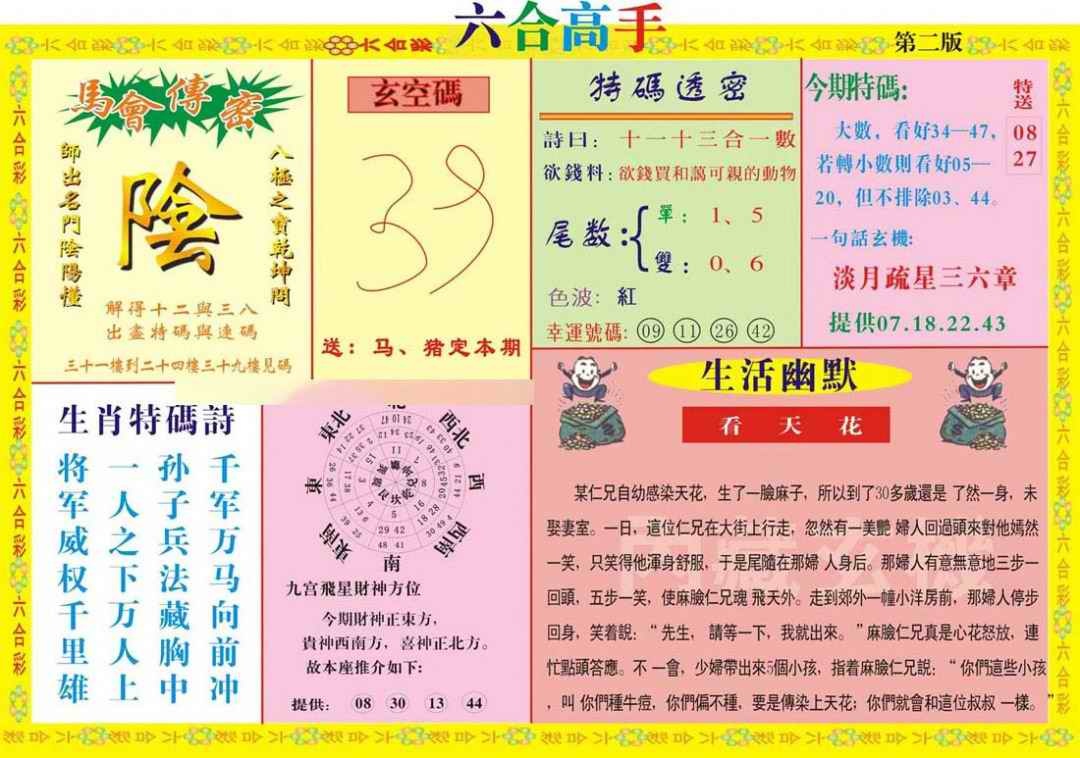 六合高手
第二版
六合彩
馬會傳密
師出名門陰陽懂
陰
八極之寶乾坤問
解得十二與三八
出盡特碼與連碼
三十一樓到二十四樓三十九樓見碼
玄空碼
送：马、猪定本期
特碼透密
詩曰：十一十三合一數
欲錢料：欲錢買和藹可親的動物
尾数：
單：1、5
雙：0、6
色波：紅
幸運號碼：09 11 26 42
今期特碼:
特送
08
27
大數，看好34—47，
若轉小數則看好05—
20，但不排除03、44。
一句話玄機:
淡月疏星三六章
提供07.18.22.43
生肖特碼詩
千军万马向前冲
孙子兵法藏胸中
一人之下万人上
将军威权千里雄
北
東北
西北
東
西
東南
西南
南
九宫飛星財神方位
今期財神正東方，
貴神西南方，喜神正北方。
故本座推介如下:
提供: 08 30 13 44
生活幽默
看天花
某仁兄自幼感染天花，生了一臉麻子，所以到了30多歲還是 了然一身，未
娶妻室。一日，這位仁兄在大街上行走，忽然有一美艷 婦人回過頭來對他嫣然
一笑，只笑得他渾身舒服，于是尾隨在那婦 人身后。那婦人有意無意地三步一
回頭，五步一笑，使麻臉仁兄魂 飛天外。走到郊外一幢小洋房前，那婦人停步
回身，笑着說：“先生，請等一下，我就出來。”麻臉仁兄真是心花怒放，連
忙點頭答應。不 一會，少婦帶出來5個小孩，指着麻臉仁兄說：“你們這些小孩
，叫 你們種牛痘，你們偏不種，要是傳染上天花；你們就會和這位叔叔 一樣。”